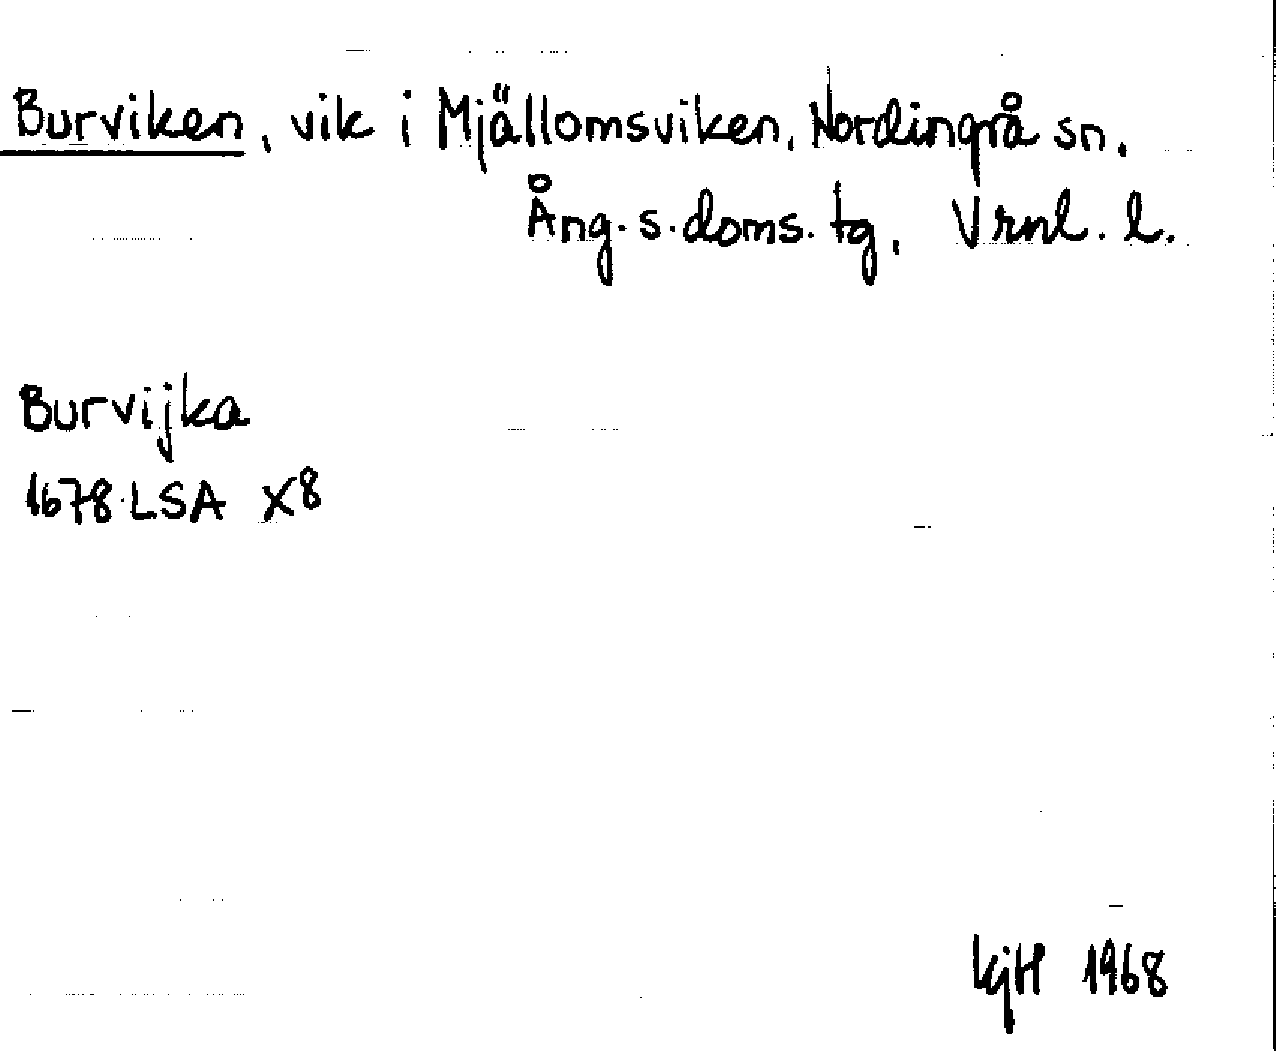 Burviken, vik i Mjällomsviken, Nordingrå sn.
Ång. s. doms. tg, Vrnl. l.
Burvijka
1678 LSA X8
KjH 1968